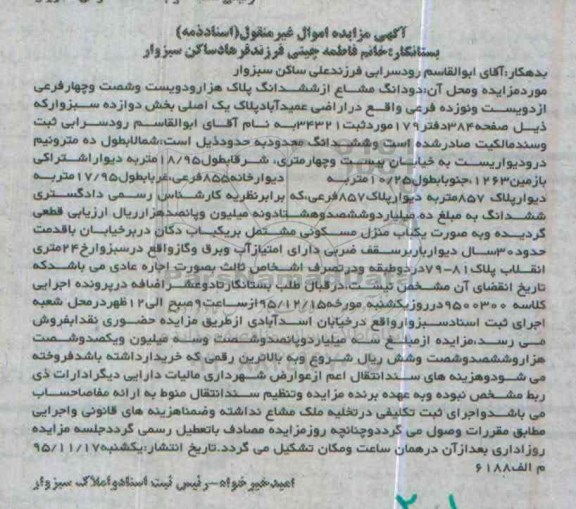 آگهی مزایده اموال غیرمنقول(اسنادذمه)
بستانکار:خانم فاطمه چینی فرزندفرهادساکن سبزوار
بدهکار:آقای ابوالقاسم رودسرابی فرزندعلی ساکن سبزوار
موردمزایده ومحل آن:دودانگ مشاع ازششدانگ پلاک هزارودویست وشصت وچهارفرعی
ازدویست ونوزده فرعی واقع دراراضی عمیدآبادپلاک یک اصلی بخش دوازده سبزوارکه
ذیل صفحه۳۸۴دفتر۱۷۹موردثبت۳۴۳۲۱به نام آقای ابوالقاسم رودسرابی ثبت
وسندمالکیت صادرشده است وششدانگ محدودبه حدودذیل است:شمالابطول ده مترونیم
درودیواریست به خیابان بیست وچهارمتری، شرقابطول۱۸/۹۵متربه دیواراشتراکی
بازمین۱۲۶۳،جنوبابطول۱۰/۲۵متربه دیوارخانه۸۵۵فرعی،غربابطول۱۷/۹۵متربه
دیوارپلاک ۸۵۷متربه دیوارپلاک۸۵۷فرعی،که برابرنظریه کارشناس رسمی دادگستری
ششدانگ به مبلغ ده میلیاردوششصدوهشتادونه میلیون وپانصدهزارریال ارزیابی قطعی
گردیده وبه صورت یکباب منزل مسکونی مشتمل بریکباب دکان دربرخیابان باقدمت
حدود۳۰سال دیوارباربرسقف ضربی دارای امتیازآب وبرق وگازواقع درسبزوارخ۲۴متری
انقلاب پلاک۸۱-۷۹دردوطبقه ودرتصرف اشخاص ثالث بصورت اجاره عادی می باشدکه
تاریخ انقضای آن مشخص نیست،درقبال طلب بستانکارتادوعشراضافه درپرونده اجرایی
کلاسه ۹۵۰۰۳۰۰ درروزیکشنبه مورخه۹۵/۱۲/۱۵ازساعت۹صبح الی۱۲ظهردرمحل شعبه
اجرای ثبت اسنادسبزوارواقع درخیابان اسدآبادی ازطریق مزایده حضوری نقدابفروش
می رسد،مزایده ازمبلغ سه میلیاردوپانصدوشصت وسه میلیون ویکصدوشصت
هزاروششصدوشصت وشش ریال شروع وبه بالاترین رقمی که خریدارداشته باشدفروخته
می شودوهزینه های سندانتقال اعم ازعوارض شهرداری مالیات دارایی دیگرادارات ذی
ربط مشخص نبوده وبه عهده برنده مزایده وتنظیم سندانتقال منوط به ارائه مفاصاحساب
می باشدواجرای ثبت تکلیفی درتخلیه ملک مشاع نداشته وضمناهزینه های قانونی واجرایی
مطابق مقررات وصول می گرددوچنانچه روزمزایده مصادف باتعطیل رسمی گرددجلسه مزایده
روزاداری بعدازآن درهمان ساعت ومکان تشکیل می گردد.تاریخ انتشار:یکشنبه۹۵/۱۱/۱۷
م الف۶۱۸۸
امیدخیرخواه-رئیس ثبت اسنادواملاک سبزوار